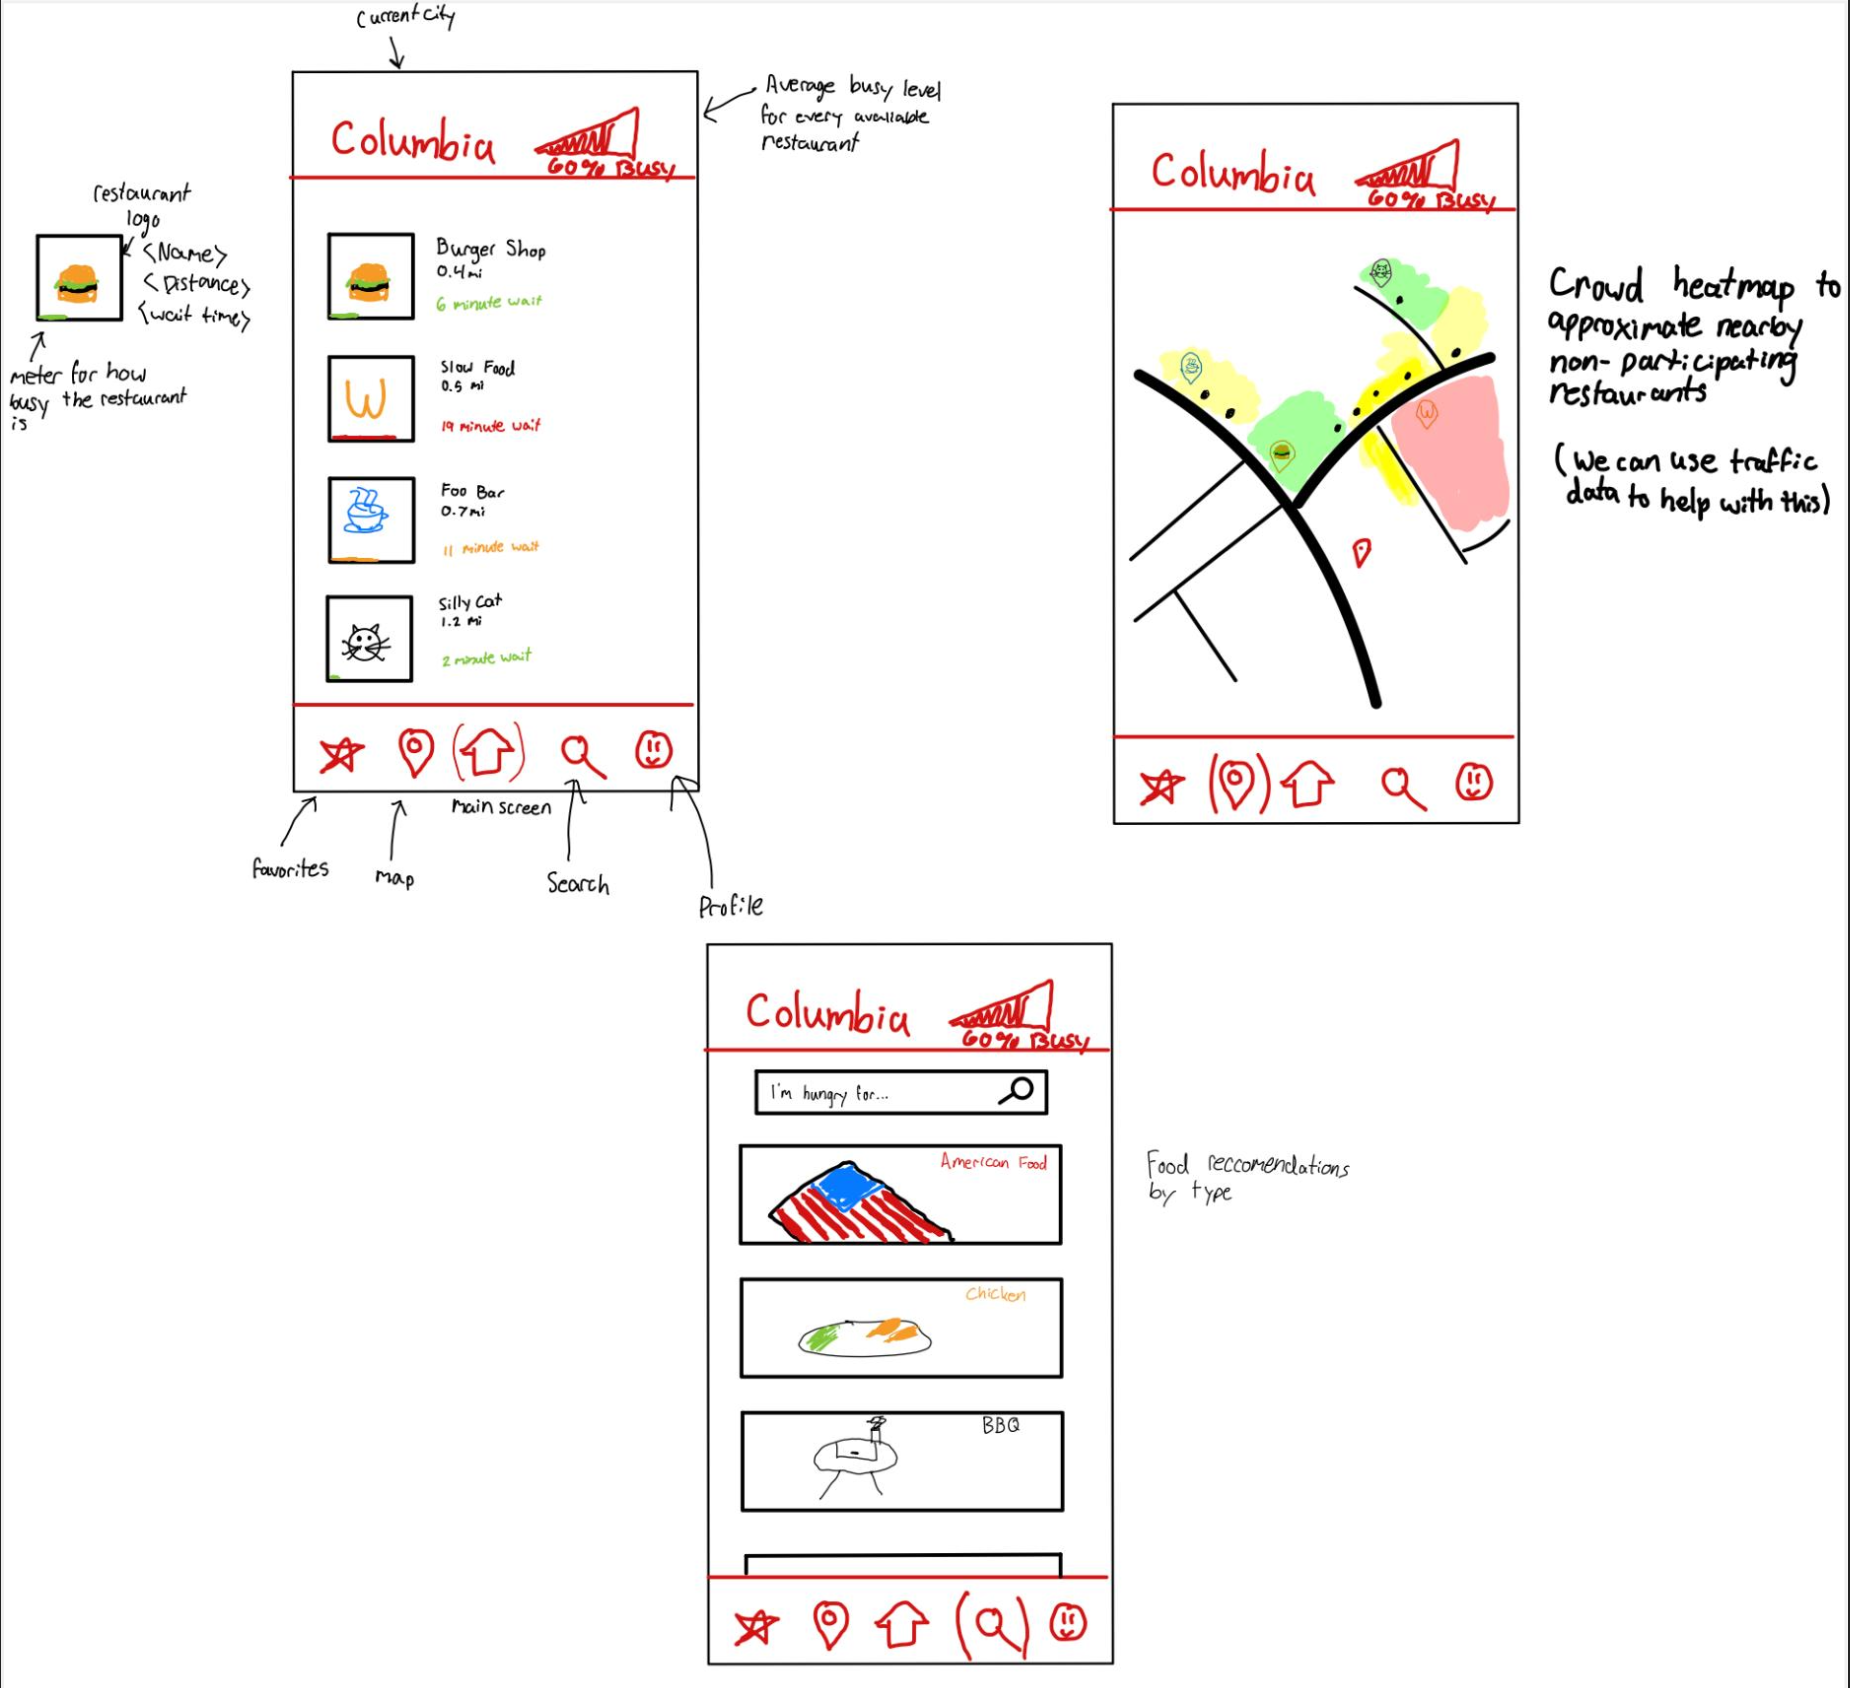 Current city
Columbia
60% Busy
Average busy level
for every available
restaurant
restaurant
logo
<Name>
<Distance>
<wait time>
meter for how
busy the restaurant
is
Burger Shop
0.4mi
6 minute wait
Slow Food
0.5 mi
W
19 minute wait
Foo Bar
0.7mi
11 minute wait
Silly Cat
1.2 mi
2 minute wait
Main screen
favorites
map
Search
Profile
Columbia
60% Busy
W
Crowd heatmap to
approximate nearby
non-participating
restaurants
(We can use traffic
data to help with this)
Columbia
60% Busy
I'm hungry for...
American Food
Chicken
BBQ
Food reccomendations
by type